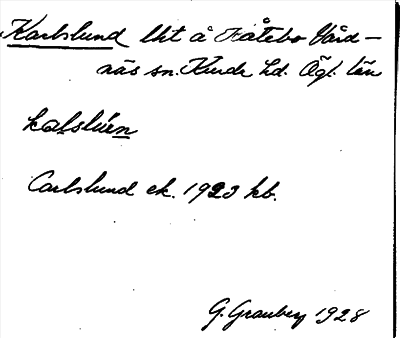 Karlslund lht å Fåtebo Vård-
näs sn. Kinda hd. Ögl. län
kalslúen
Carlslund ek. 1923 kb.
G. Granberg 1928